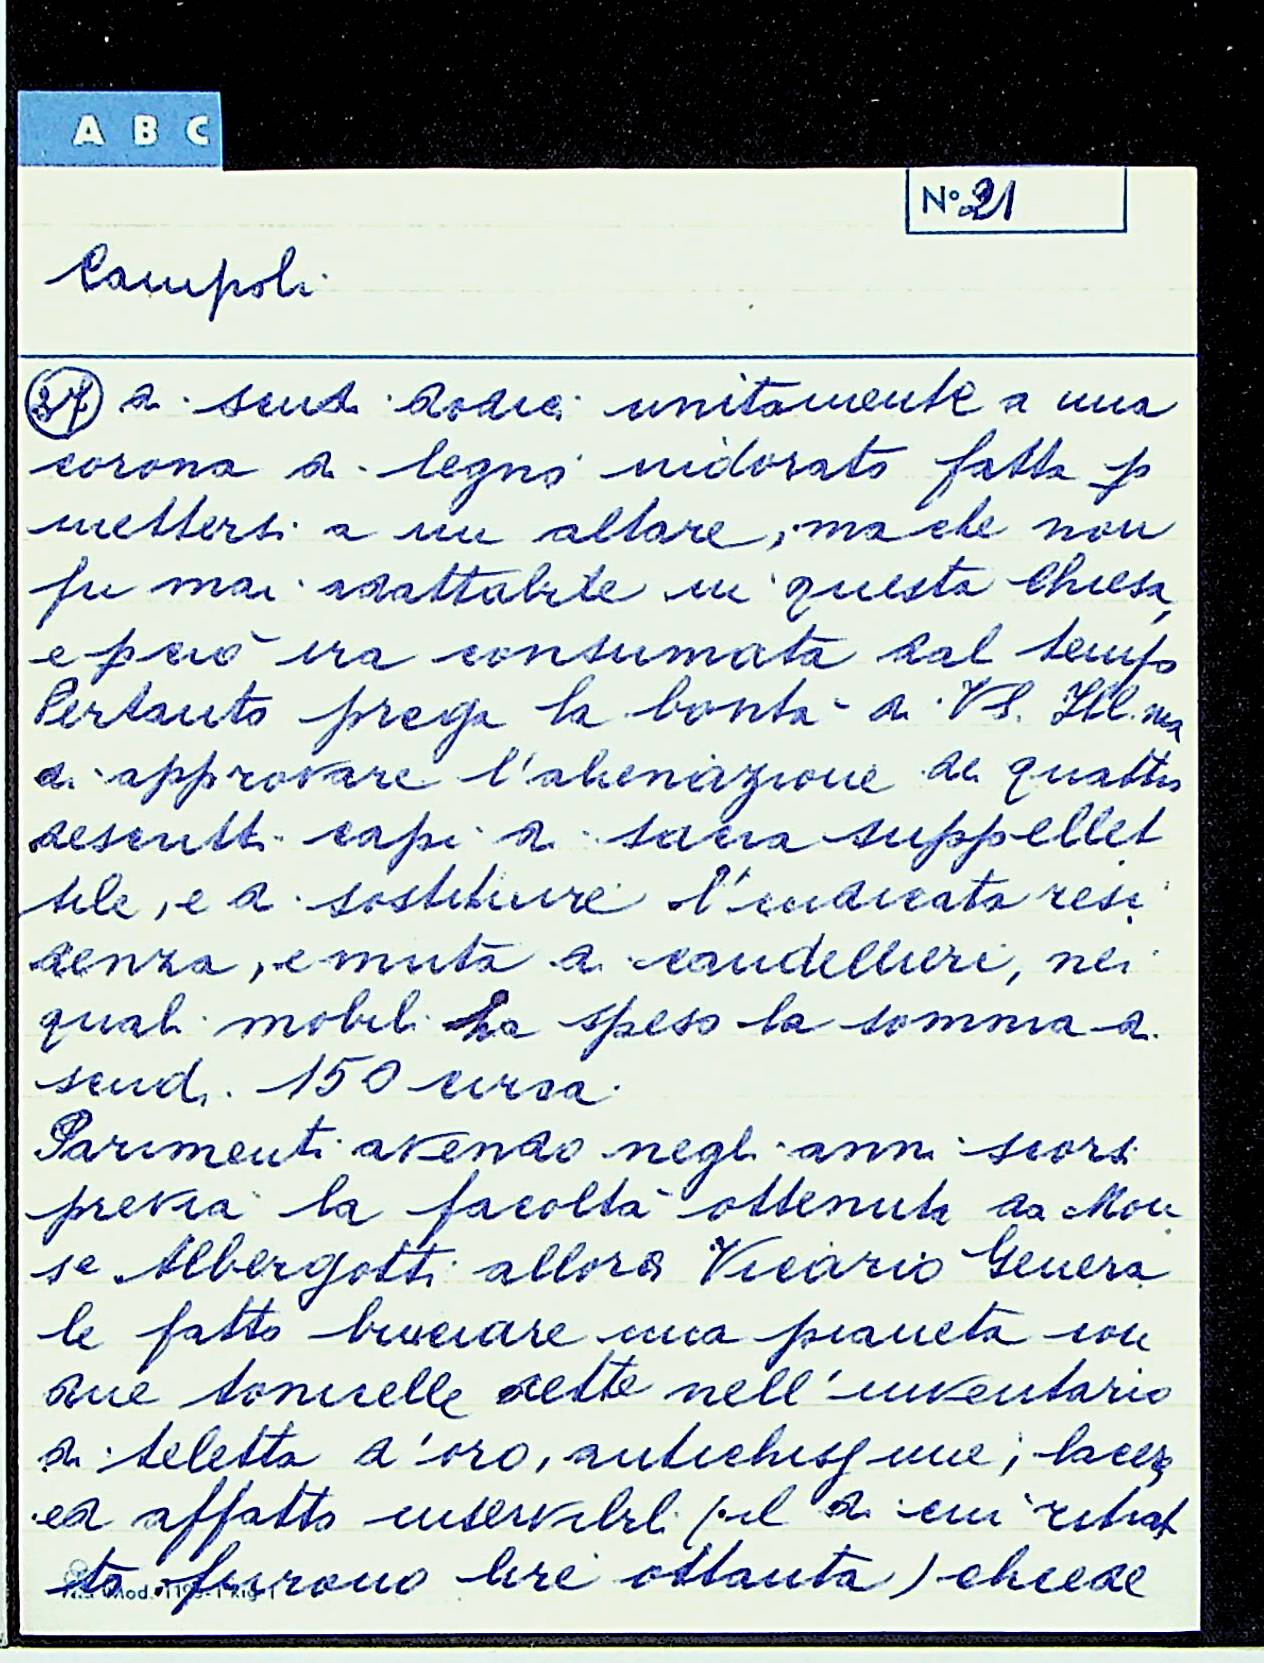 A B C
N° 21
Campoli
27 di scudi dodici unitamente a una
corona di legno indorato fatta p
mettersi a un altare, ma che non
fu mai adattabile in questa Chiesa,
e perciò era consumata dal tempo
Pertanto prega la bontà di VS. Ill.ma
di approvare l'alienazione dei quattro
descritti capi di sacra suppellet
tile, e di sostituire l'indicata resi
denza, e muta di candellieri, nei
quali mobili ha speso la somma di
scudi 150 circa.
Parimenti avendo negli anni scorsi
previa la facoltà ottenuta da Mon
se Albergotti allora Vicario Genera
le fatto bruciare una pianeta con
due tonicelle dette nell'inventario
di teletta d'oro, antichissime; lacere
ed affatto inservibili (il di cui ritrat
to furono lire ottanta) chiede
Mod. 119